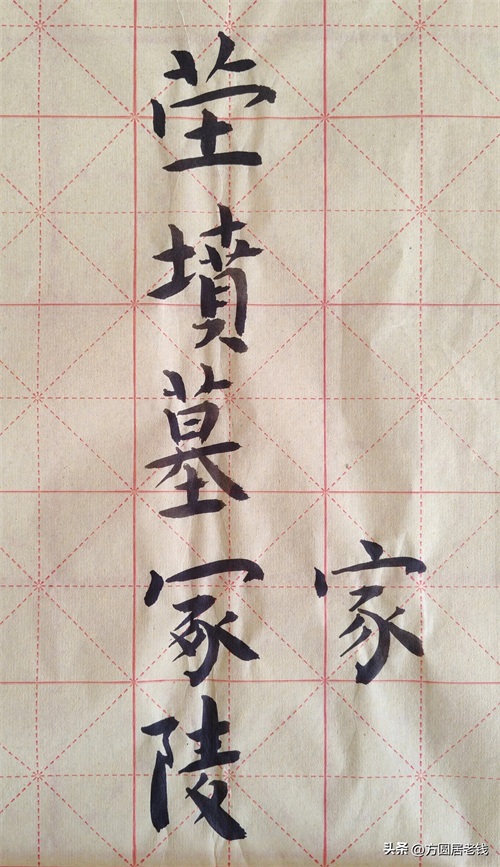 茔墳墓冢陵
家
头条 @方圆居老钱